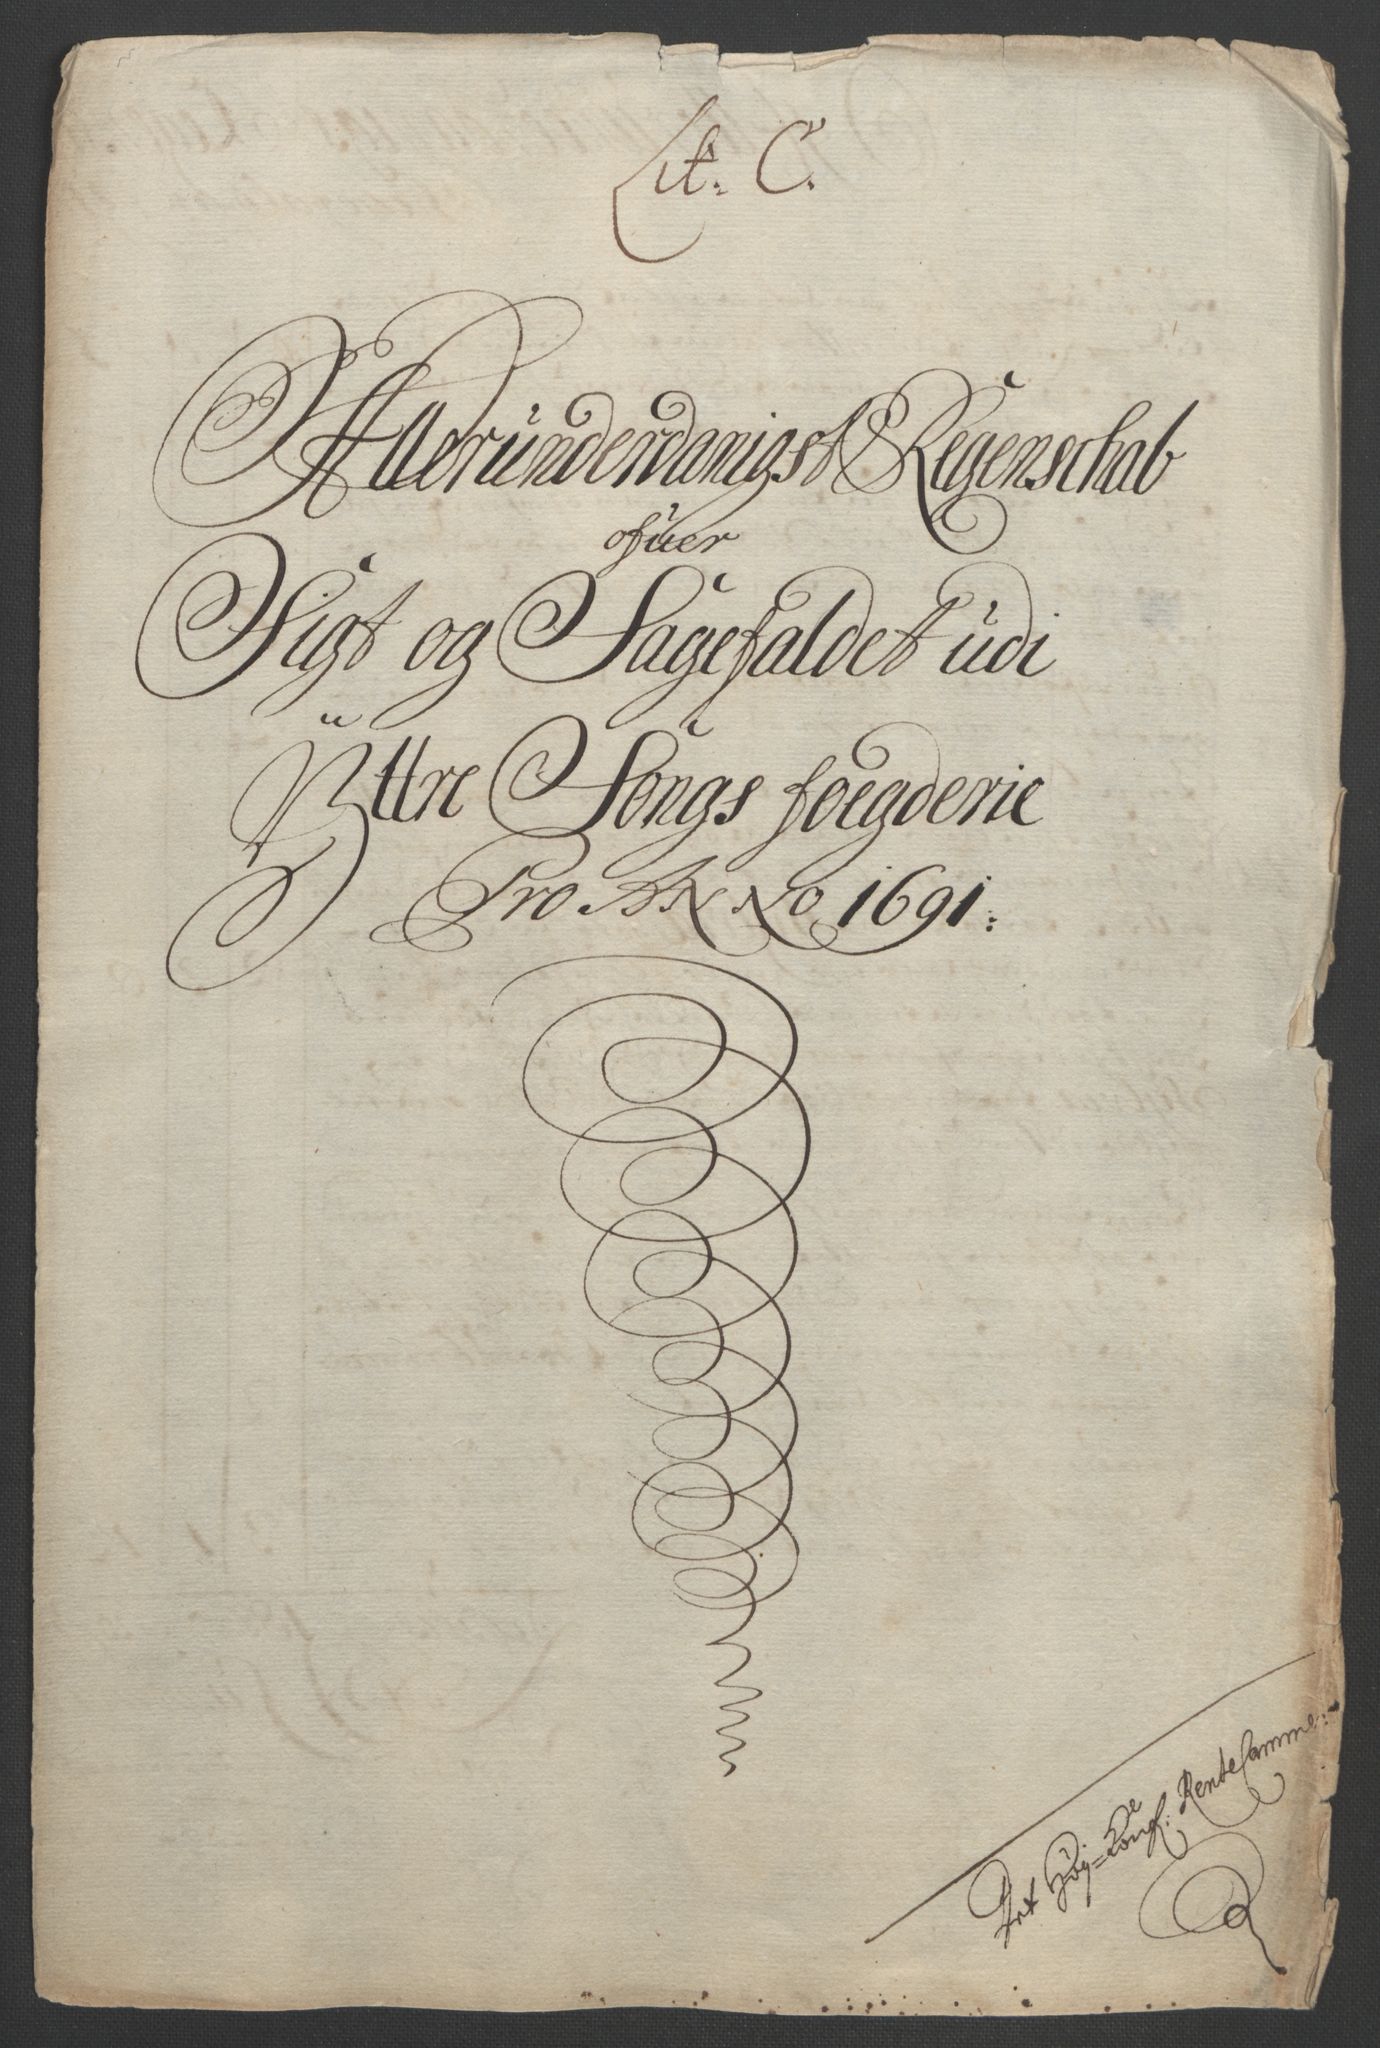 Lit. C.
Alleründerdanigst Regenschab
ofuer
Sigt og Sagefaldet udi
Ÿttre Songs foegderie
Pro Anno 1691:
Det Høy-Kongl. Rente Camme